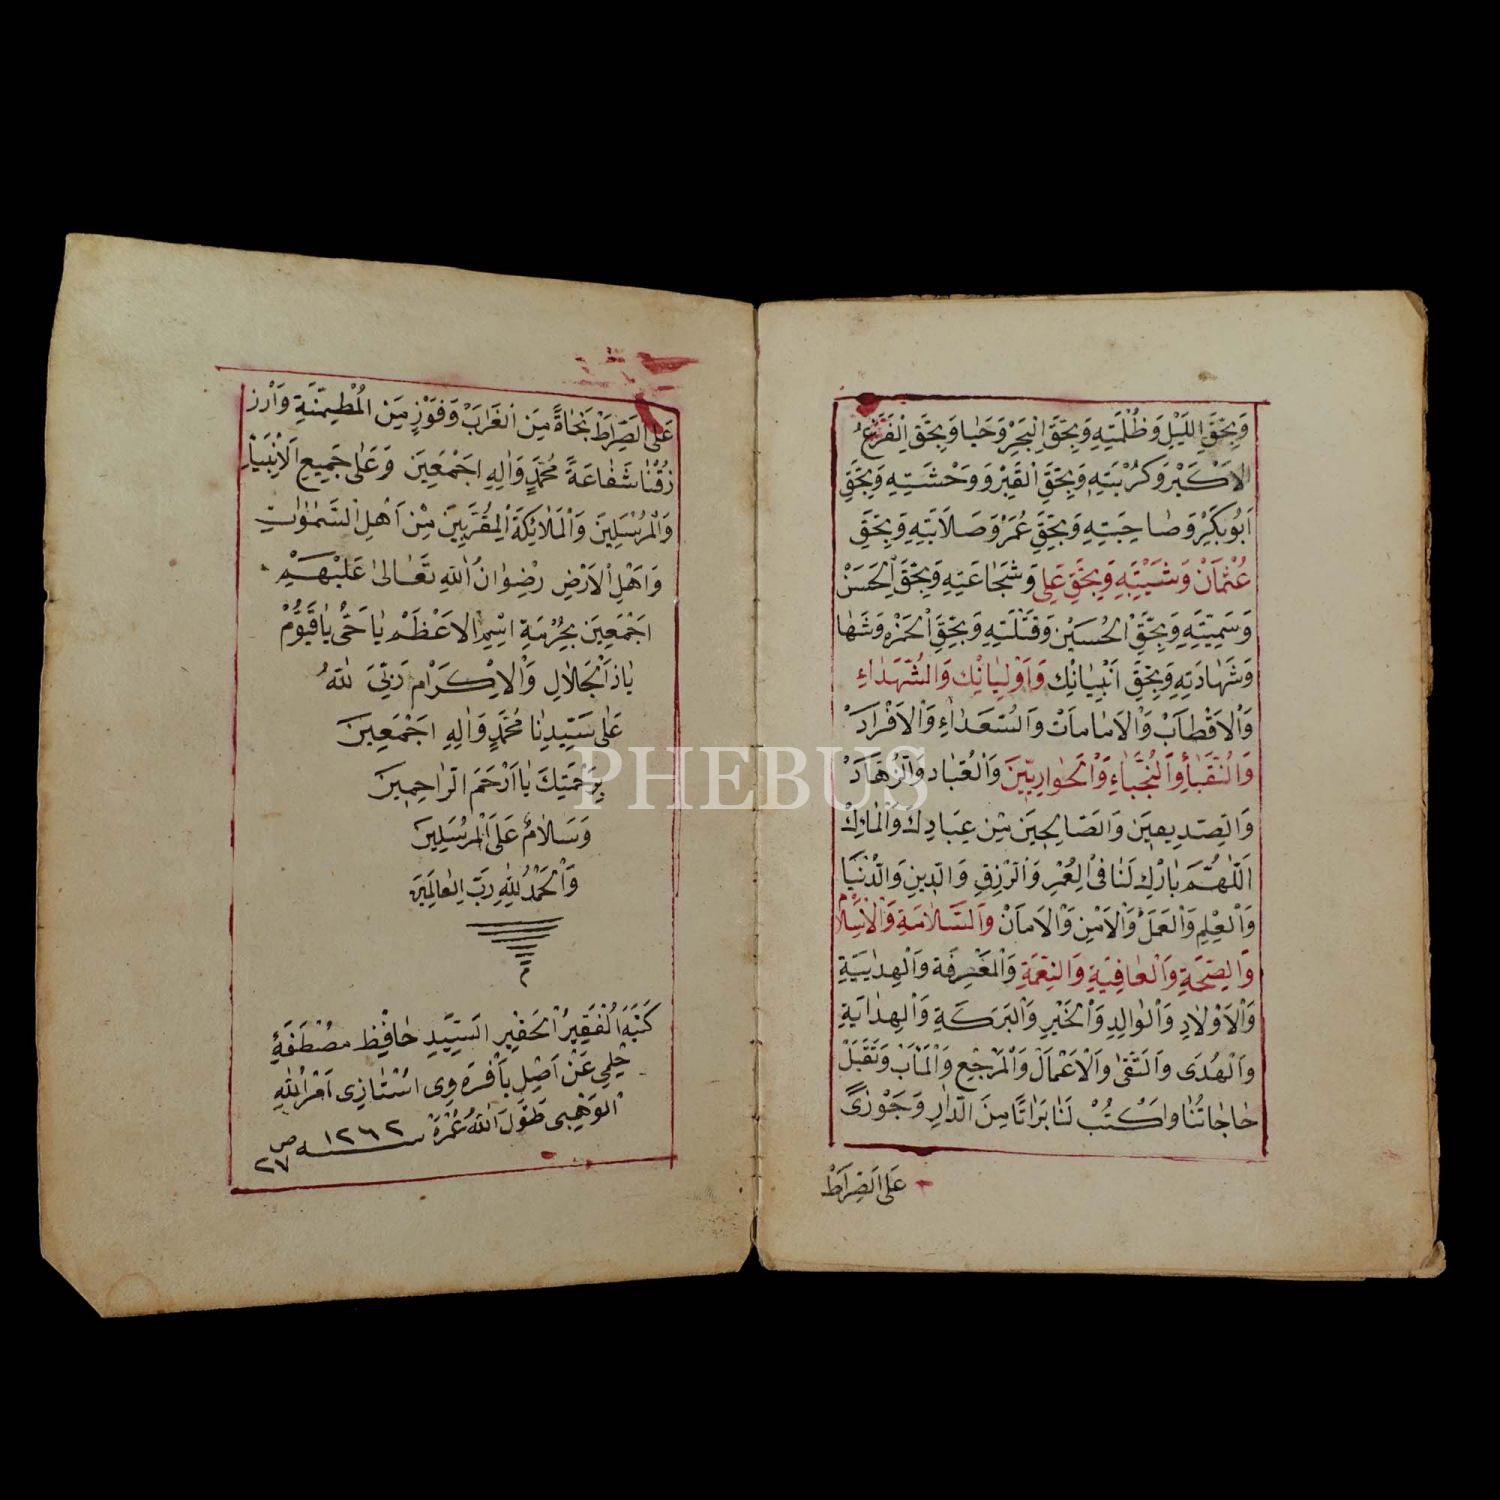 وَبِحَقِّ اللَّيْلِ وَظُلْمَتِهِ وَبِحَقِّ الْبَحْرِ وَحَبَا وَبِحَقِّ الْفَزَعُ
الْاَكْبَرْ وَكُرْبَتِهِ وَبِحَقِّ الْقَبْرِ وَ وَحْشَتِهِ وَبِحَقِّ
اَبُوبَكِرْ وَصَاحِبَتِهِ وَبِحَقِّ عُمَرْ وَصَلَابَتِهِ وَبِحَقِّ
عُثْمَانْ وَشَيْبَتِهِ وَبِحَقِّ عَلِى وَشَجَاعَتِهِ وَبِحَقِّ الْحَسَنْ
وَسَمِيَّتِهِ وَبِحَقِّ الْحُسَيْن وَقَتْلَتِهِ وَبِحَقِّ الْحَمْزَه وَشَهَا
وَشَهَادَتِهِ وَبِحَقِّ اَنْبِيَائِكَ وَاَوْلِيَائِكَ وَالشُّهَدَاءِ
وَالْاَقْطَابْ وَالْاَمَامَاتْ وَالسُّعَدَاءِ وَالْاَفْرَادْ
وَالنُّقَبَاءِ وَالنُّجَبَاءِ وَالْحَوَارِيّينَ وَالْعُبَّادْ وَالزُّهَّادْ
وَالصِّدِيقِينَ وَالصَّالِحِينَ مِنْ عِبَادِكَ
اَللّٰهُمَّ بَارِكْ لَنَا فِى الْعُمْرِ وَالرِّزْقِ وَالدِّينِ وَالدُّنْيَا
وَالْعِلْمِ وَالْعَمَلْ وَالْاَمْنِ وَالْاَمَانْ وَالسَّلَامَةِ وَالْاِسْلَا
وَالصِّحَّةِ وَالْعَافِيَةِ وَالنِّعْمَةِ وَالْمَعْرِفَة وَالْهِدَايَيَّةِ
وَالْاَوْلَادِ وَالْوَالِدِ وَالْخَيْرِ وَالْبَرَكَةِ وَالْهِدَايَةِ
وَالْهُدَى وَالتَّقٰى وَالْاَعْمَالْ وَالْمَرْجِعِ وَالْمَابْ وَتَقَبَّلْ
حَاجَاتُنَا وَاكْتُبْ لَنَا بَرَاتًا مِنَ الدَّارِ وَجَوْزَىً
عَلَى الصِّرَاطْ
عَلَى الصِّرَاطْ نَجَاةً مِنَ الْعَرَابْ وَفَوْزٍ مِنَ الْمُطْمَئِنَّةِ وَارْز
زُقْنَا شَفَاعَةً مُحَمَّدٍ وَاٰلِهِ اَجْمَعِينَ وَعَلٰى جَمِيعِ الْاَنْبِيَاءِ
وَالْمُرْسَلِينَ وَالْمَلَائِكَةِ الْمُقَرَّبِينَ مِنْ اَهْلِ السَّمٰوَاتِ
وَاَهْلِ الْاَرْضِ رِضْوَانُ اللّٰهِ تَعَالٰى عَلَيْهِمْ
اَجْمَعِينَ بِحُرْمَةِ اِسْمِ الْاَعْظَمْ يَا حَىُّ يَا قَيُّومْ
يَا ذَا الْجَلَالِ وَالْاِكْرَامْ رَبِّىَ اللّٰهُ
عَلٰى سَيِّدِنَا مُحَمَّدٍ وَاٰلِهِ اَجْمَعِينَ
بِرَحْمَتِكَ يَا اَرْحَمَ الرَّاحِمِينَ
وَسَلَامٌ عَلَى الْمُرْسَلِينَ
وَالْحَمْدُ لِلّٰهِ رَبِّ الْعَالَمِينَ
م
كَتَبَهُ الْفَقِيرُ الْحَقِيرِ السَّيِّدِ حَافِظِ مصْطَفَه
حِلْمِى عَنْ اَصْلِ اُسْتَازِى اَمْرُاللّٰهِ
الْوَهْبِى طَوَّلَ اللّٰهُ عُمْرَهْ سنه ١٢٦٢ ص ٢٧
PHEBUS